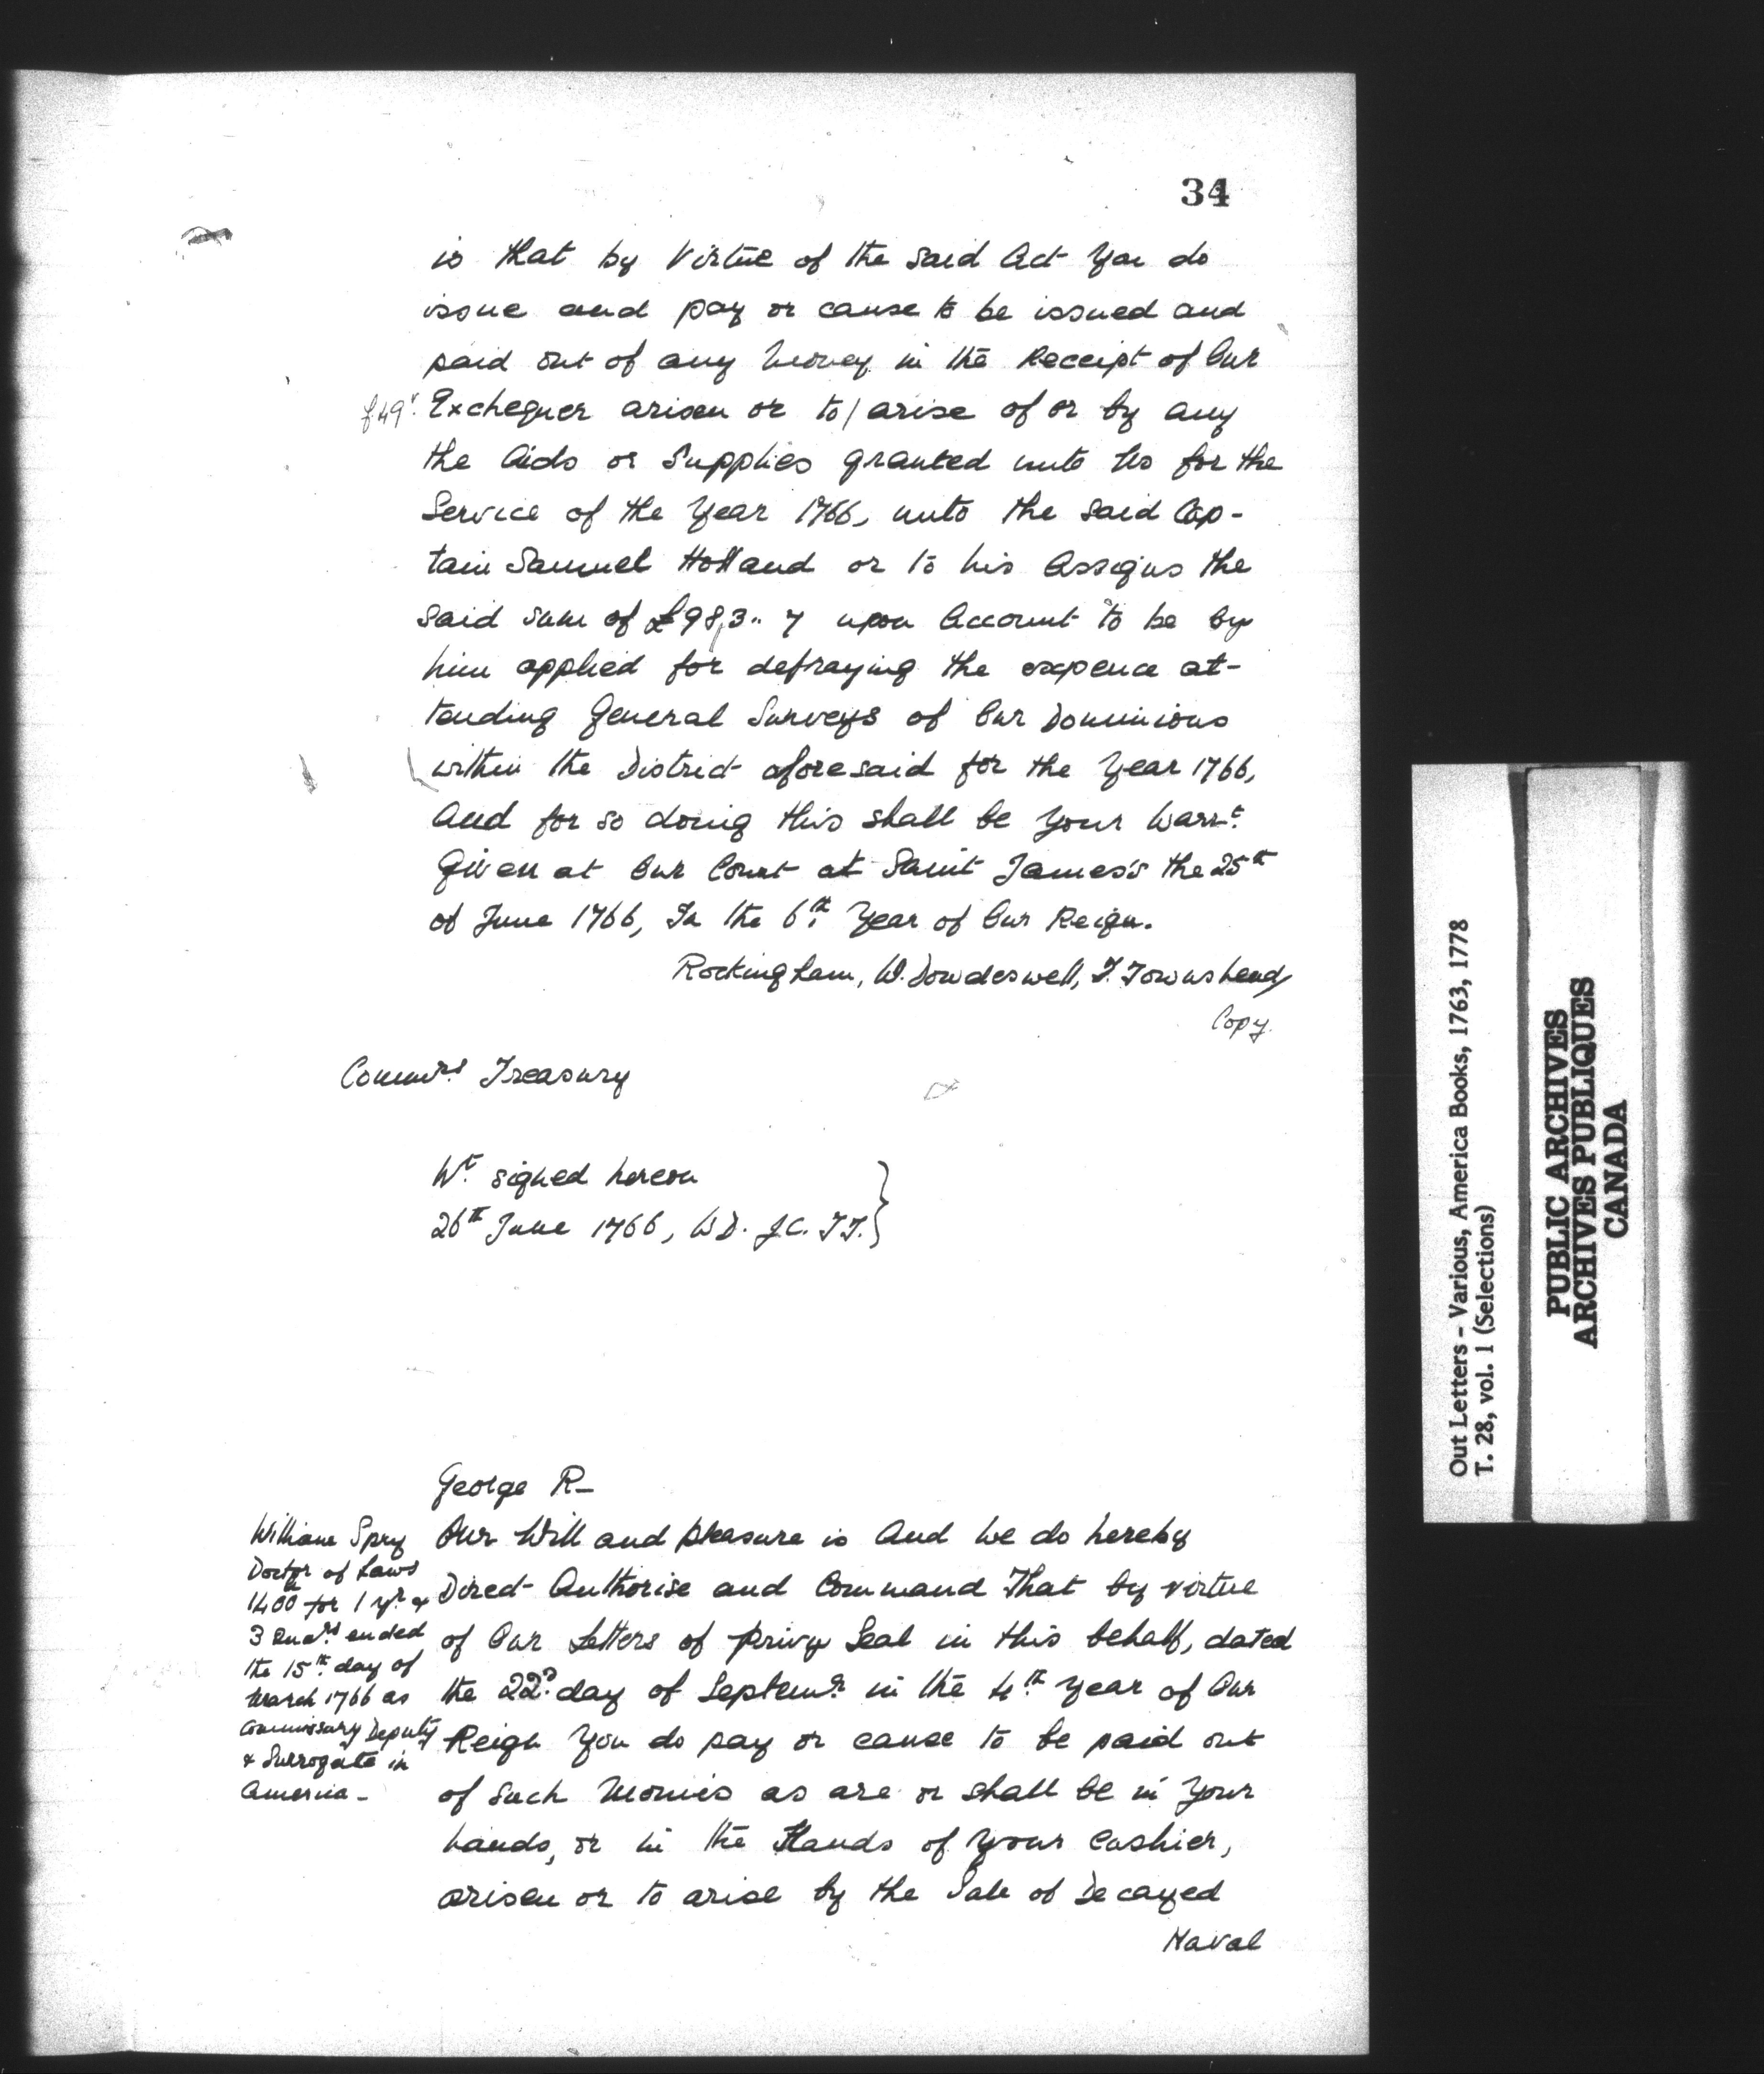 34
is that by Virtue of the said Act You do
issue and pay or cause to be issued and
paid out of any Money in the Receipt of Our
f 49v. Exchequer arisen or to/arise of or by any
the Aids or Supplies granted unto Us for the
Service of the Year 1766, unto the said Cap-
tain Samuel Holland or to his Assigns the
said sum of £983" 7 upon Account to be by
him applied for defraying the expence at-
tending General Surveys of Our Dominions
within the District aforesaid for the Year 1766,
And for so doing this shall be Your Warrt.
Given at Our Court at Saint James's the 25th
of June 1766, In the 6th Year of Our Reign.
Rockingham, W. Dowdeswell, T. Townshend
Copy.
Commrs. Treasury
Wt. signed hereon
26th June 1766, WD. JC. TT.
George R_
Our Will and pleasure is And We do hereby
Direct Authorise and Command That by virtue
of Our Letters of Privy Seal in this behalf, dated
the 22d. day of Septemr. in the 4th. Year of Our
Reign You do pay or cause to be paid out
of such Monies as are or shall be in Your
hands, or in the Hands of Your Cashier,
arisen or to arise by the Sale of Decayed
Naval
William Spry
Doctor of Laws
1400 for 1 yr. &
3 Quars. ended
the 15th. day of
March 1766 as
Commissary Deputy
& Surrogate in
America_
Out Letters - Various, America Books, 1763, 1778
T. 28, vol. 1 (Selections)
PUBLIC ARCHIVES
ARCHIVES PUBLIQUES
CANADA